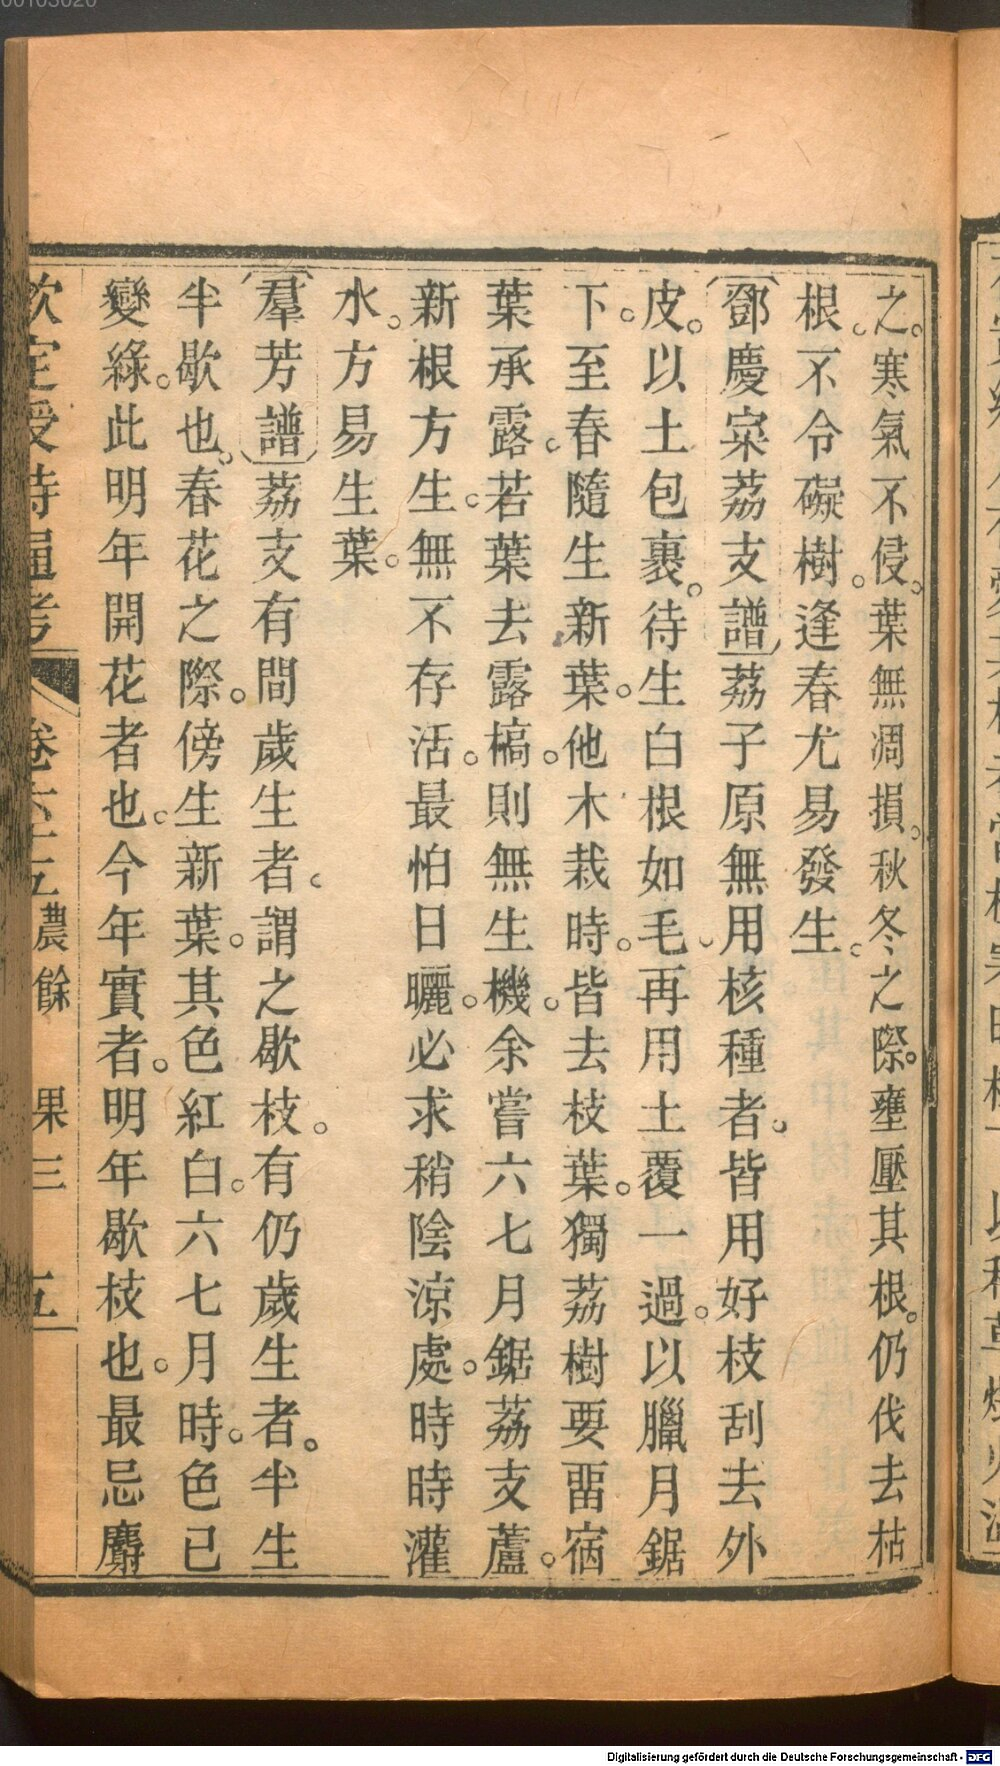 之。寒氣不侵。葉無凋損。秋冬之際。壅壓其根。仍伐去枯
根。不令礙樹。逢春尤易發生。
鄧慶寀荔支譜荔子原無用核種者。皆用好枝刮去外
皮。以土包裹。待生白根如毛。再用土覆一過。以臘月鋸
下。至春隨生新葉。他木栽時。皆去枝葉。獨荔樹要畱宿
葉承露。若葉去露槁。則無生機。余嘗六七月鋸荔支蘆。
新根方生。無不存活。最怕日曬。必求稍陰涼處。時時灌
水。方易生葉。
羣芳譜荔支有間歲生者。謂之歇枝。有仍歲生者。半生
半歇也。春花之際。傍生新葉。其色紅白。六七月時。色已
變綠。此明年開花者也。今年實者。明年歇枝也。最忌麝
欽定授時通考 卷六十五 農餘 果三 五
Digitalisierung gefördert durch die Deutsche Forschungsgemeinschaft - DFG